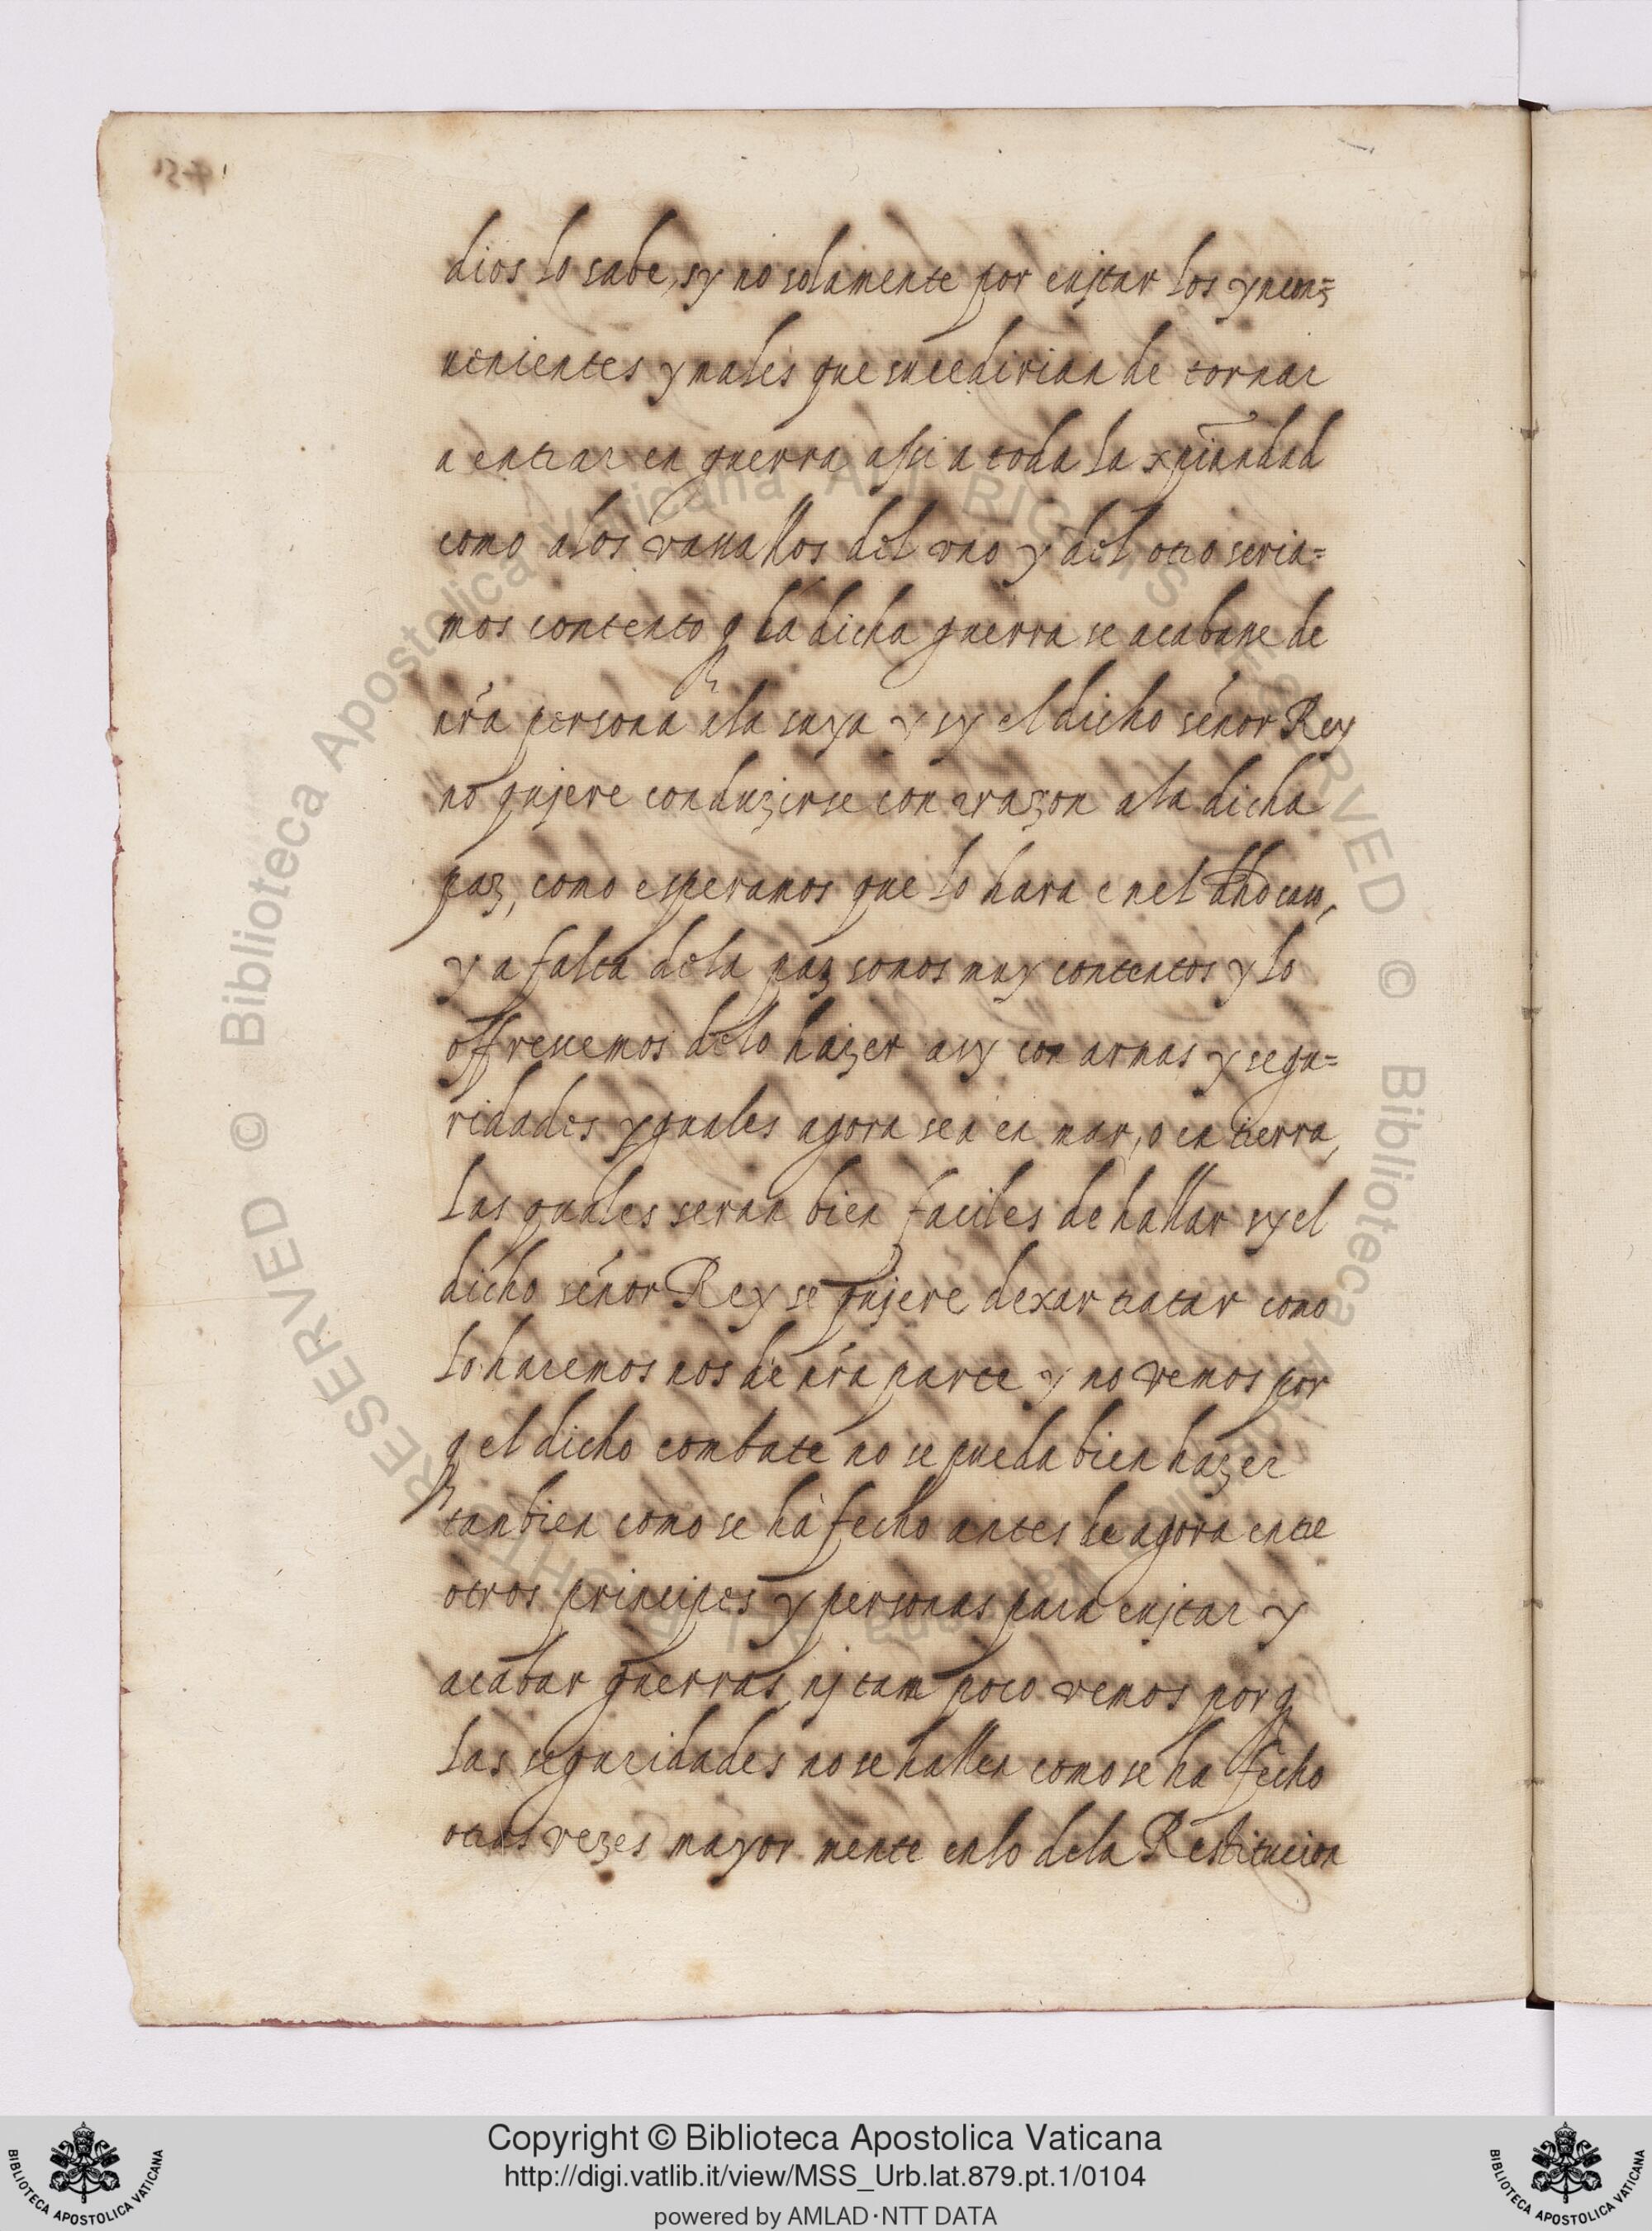 dios lo sabe, sy no solamente por euitar los yncon=
uenientes y males que sucedirian de tornar
a entrar en guerra assi a toda la xpiandad
como alos vassallos del vno y del otro seria=
mos contento q la dicha guerra se acabasse de
nr̃a persona ala suya y sy el dicho señor Rey
no qujere conduzirse con rrazon ala dicha
paz, como esperamos que lo hara enel dho caso,
y a falta dela paz somos muy contentos y lo
offrescemos delo hazer asy con armas y segu=
ridades yguales agora sea en mar, o en tierra,
las quales seran bien faciles de hallar sy el
dicho señor Rey se qujere dexar tratar como
lo haremos nos de nr̃a parte y no vemos por
q el dicho combate no se pueda bien hazer
tanbien como se hà fecho antes de agora entre
otros principes y personas para eujtar y
acabar guerras, nj tam poco vemos por q
las seguridades no se hallen como se ha fecho
otras vezes mayor mente enlo dela Restitucion
Copyright © Biblioteca Apostolica Vaticana
http://digi.vatlib.it/view/MSS_Urb.lat.879.pt.1/0104
powered by AMLAD·NTT DATA
BIBLIOTECA APOSTOLICA VATICANA
BIBLIOTECA APOSTOLICA VATICANA
© Biblioteca Apostolica Vaticana ALL RIGHTS RESERVED © Biblioteca Apostolica Vaticana ALL RIGHTS RESERVED